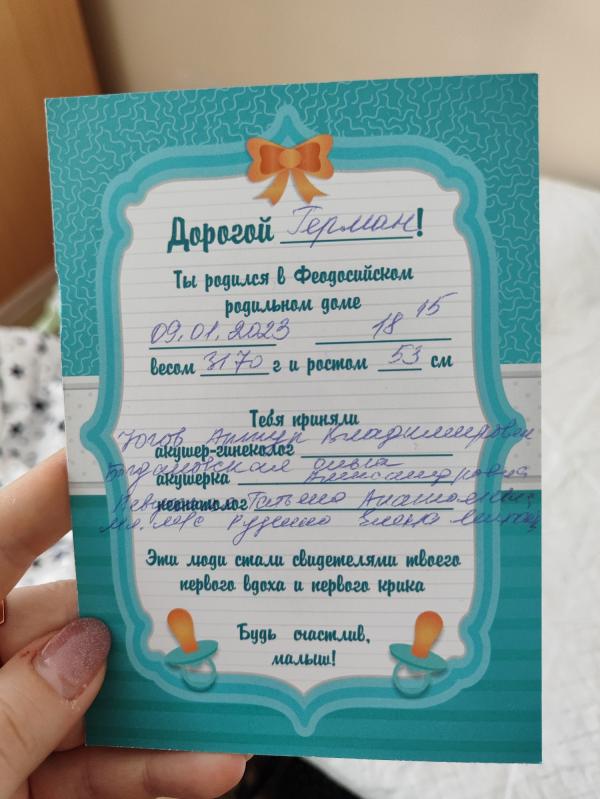 Дорогой Герман!
Ты родился в Феодосийском
родильном доме
09.01.2023 18 15
весом 3170 г и ростом 53 см
Тебя приняли
Югов Артур Владимирович
акушер-гинеколог
Богдановская Ольга
акушерка Александровна
неонатолог Татьяна Анатольевна
Руденко Елена
Эти люди стали свидетелями твоего
первого вдоха и первого крика
Будь счастлив,
малыш!